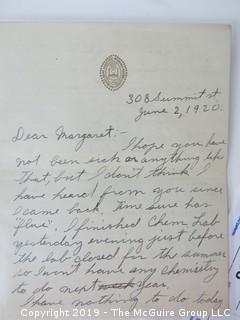 308 Summit st
June 2, 1920.
Dear Margaret:-
I hope you have
not been sick or anything like
that, but I don't think I
have heard from you since
I came back. Time sure has
"flew". I finished Chem Lab
yesterday evening just before
the lab closed for the summer
so I won't have any chemistry
to do next year.
I have nothing to do today
Copyright 2019 - The McGuire Group LLC